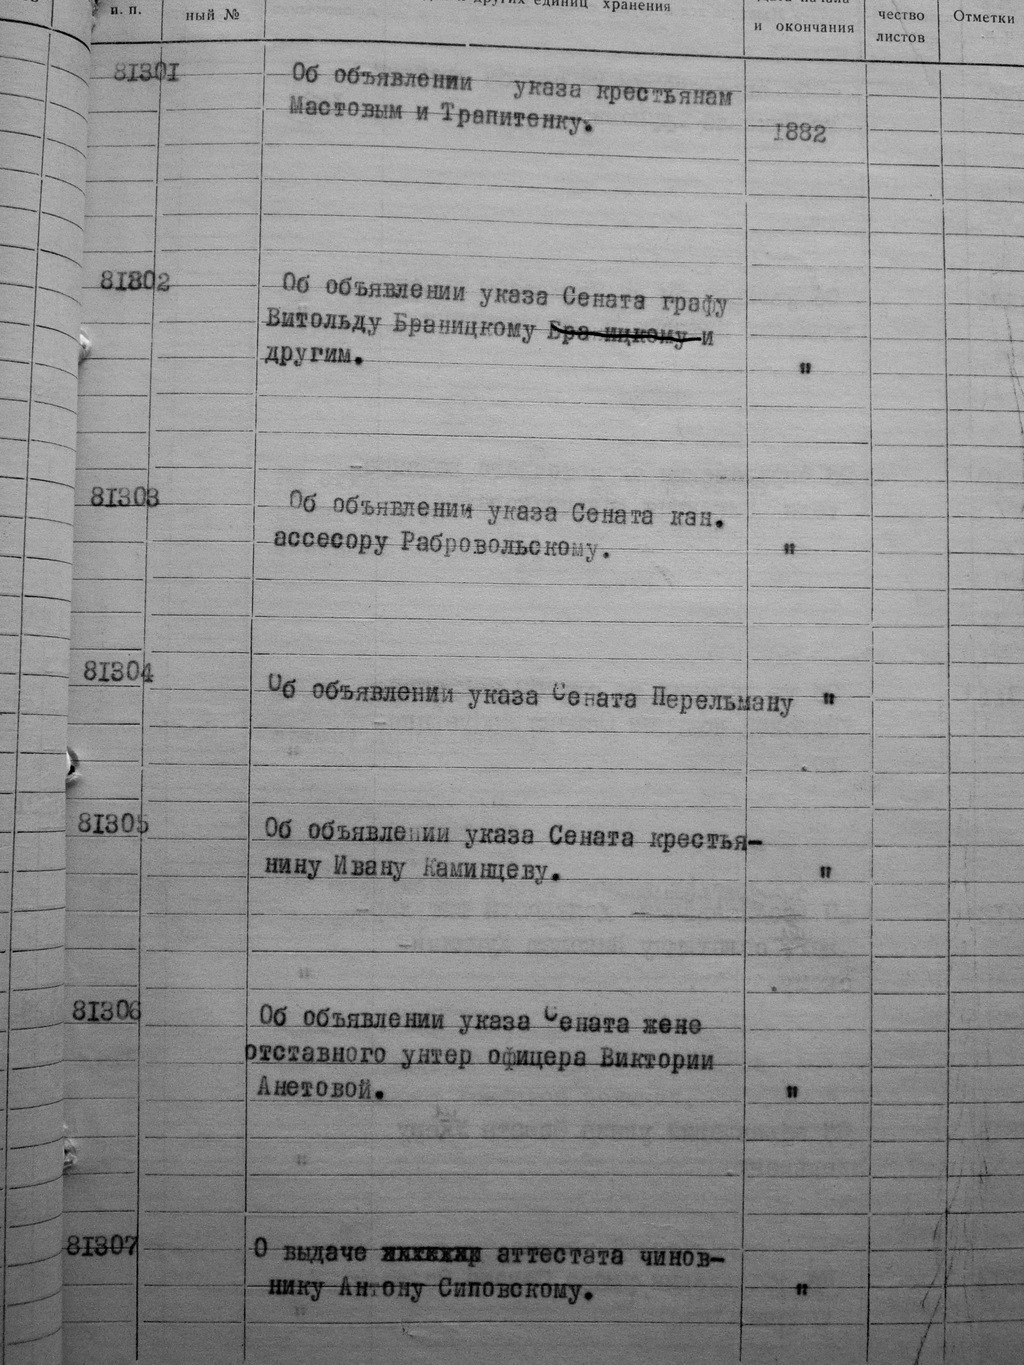 п. п.
ный №
других единиц хранения
и окончания
чество
листов
Отметки
81301
Об объявлении указа крестьянам
Мастовым и Трапитенку.
1882
81302
Об объявлении указа Сената графу
Витольду Браницкому Бра ицкому и
другим.
"
81303
Об объявлении указа Сената кан.
ассесору Рабровольскому.
"
81304
Об объявлении указа Сената Перельману "
81305
Об объявлении указа Сената крестья-
нину Ивану Каминцеву.
"
81306
Об объявлении указа Сената жене
отставного унтер офицера Виктории
Анетовой.
"
81307
О выдаче аттестата чинов-
нику Антону Сиповскому.
"